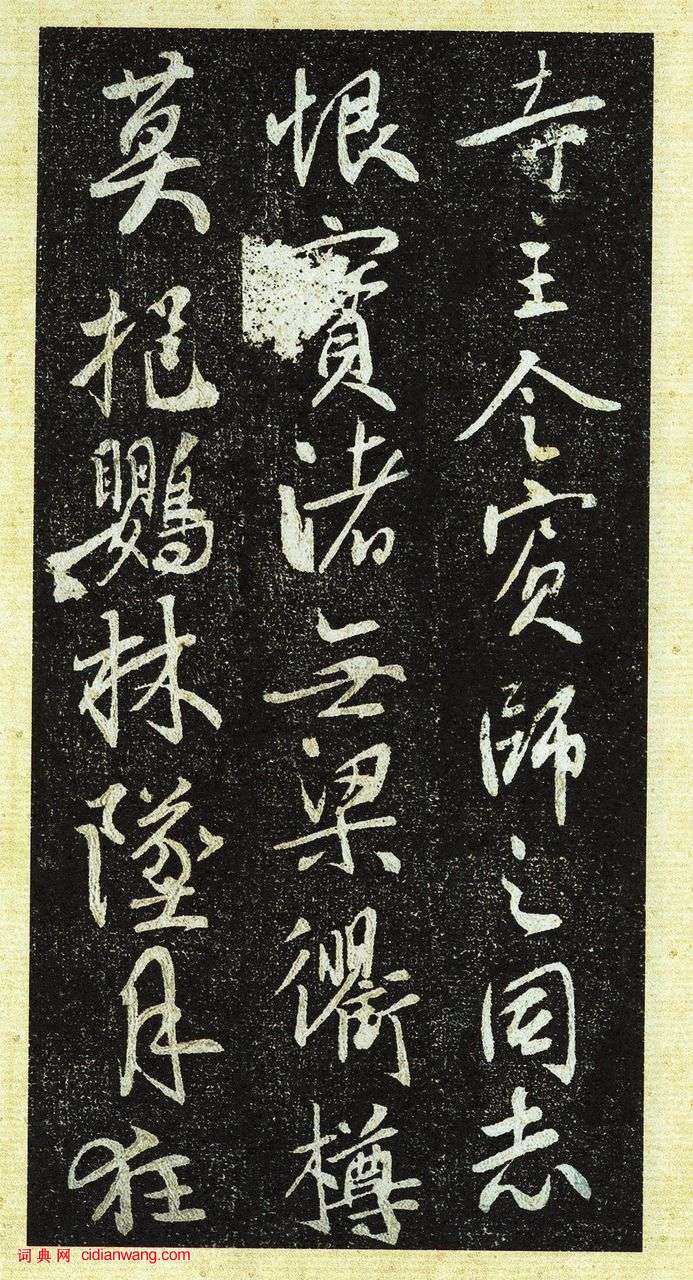 寺主令賓師之同志
恨寶渚無梁衢樽
莫挹鸚林墜月狂
词典网 cidianwang.com